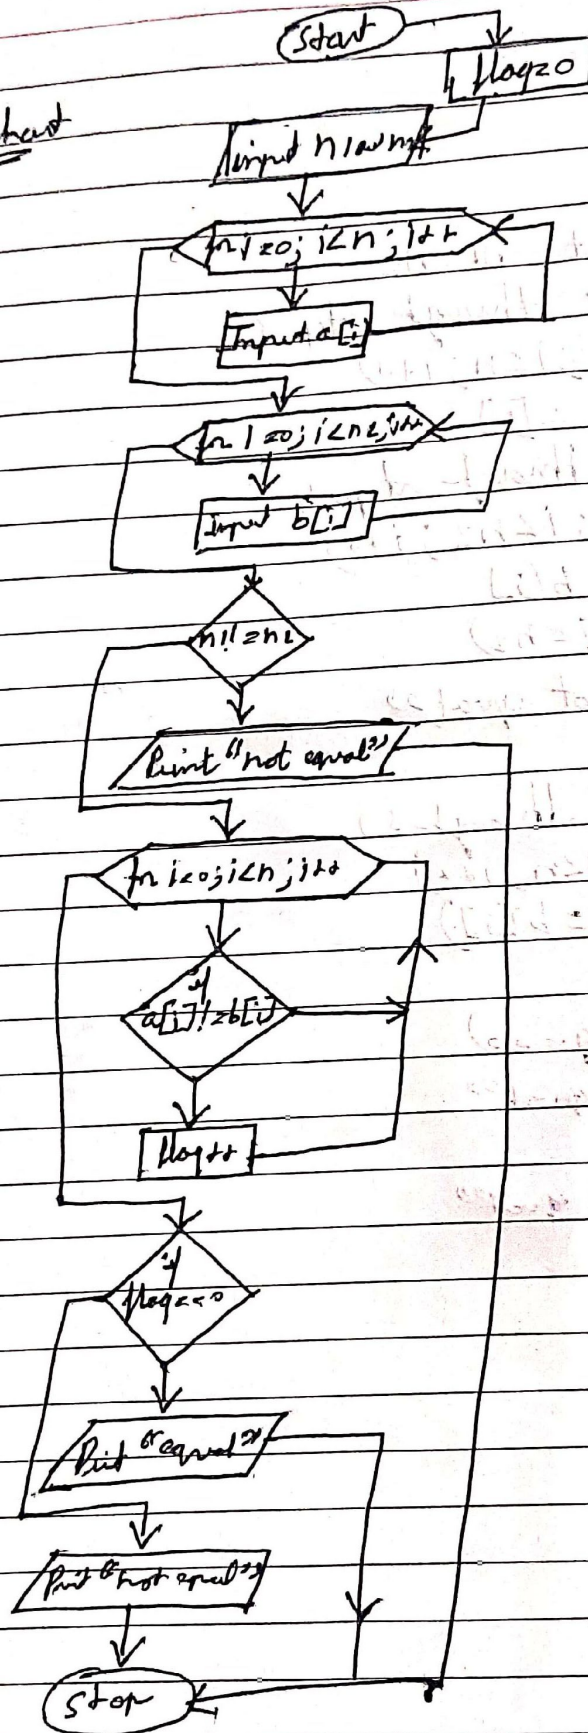 Start
flag=0
input n1 and n2
for i=0; i<n; i++
Input a[i]
for i=0; i<n2; i++
Input b[i]
n1!=n2
Print "not equal"
for i=0; i<n; i++
if
a[i]!=b[i]
flag++
if
flag==0
Print "equal"
Print "not equal"
Stop